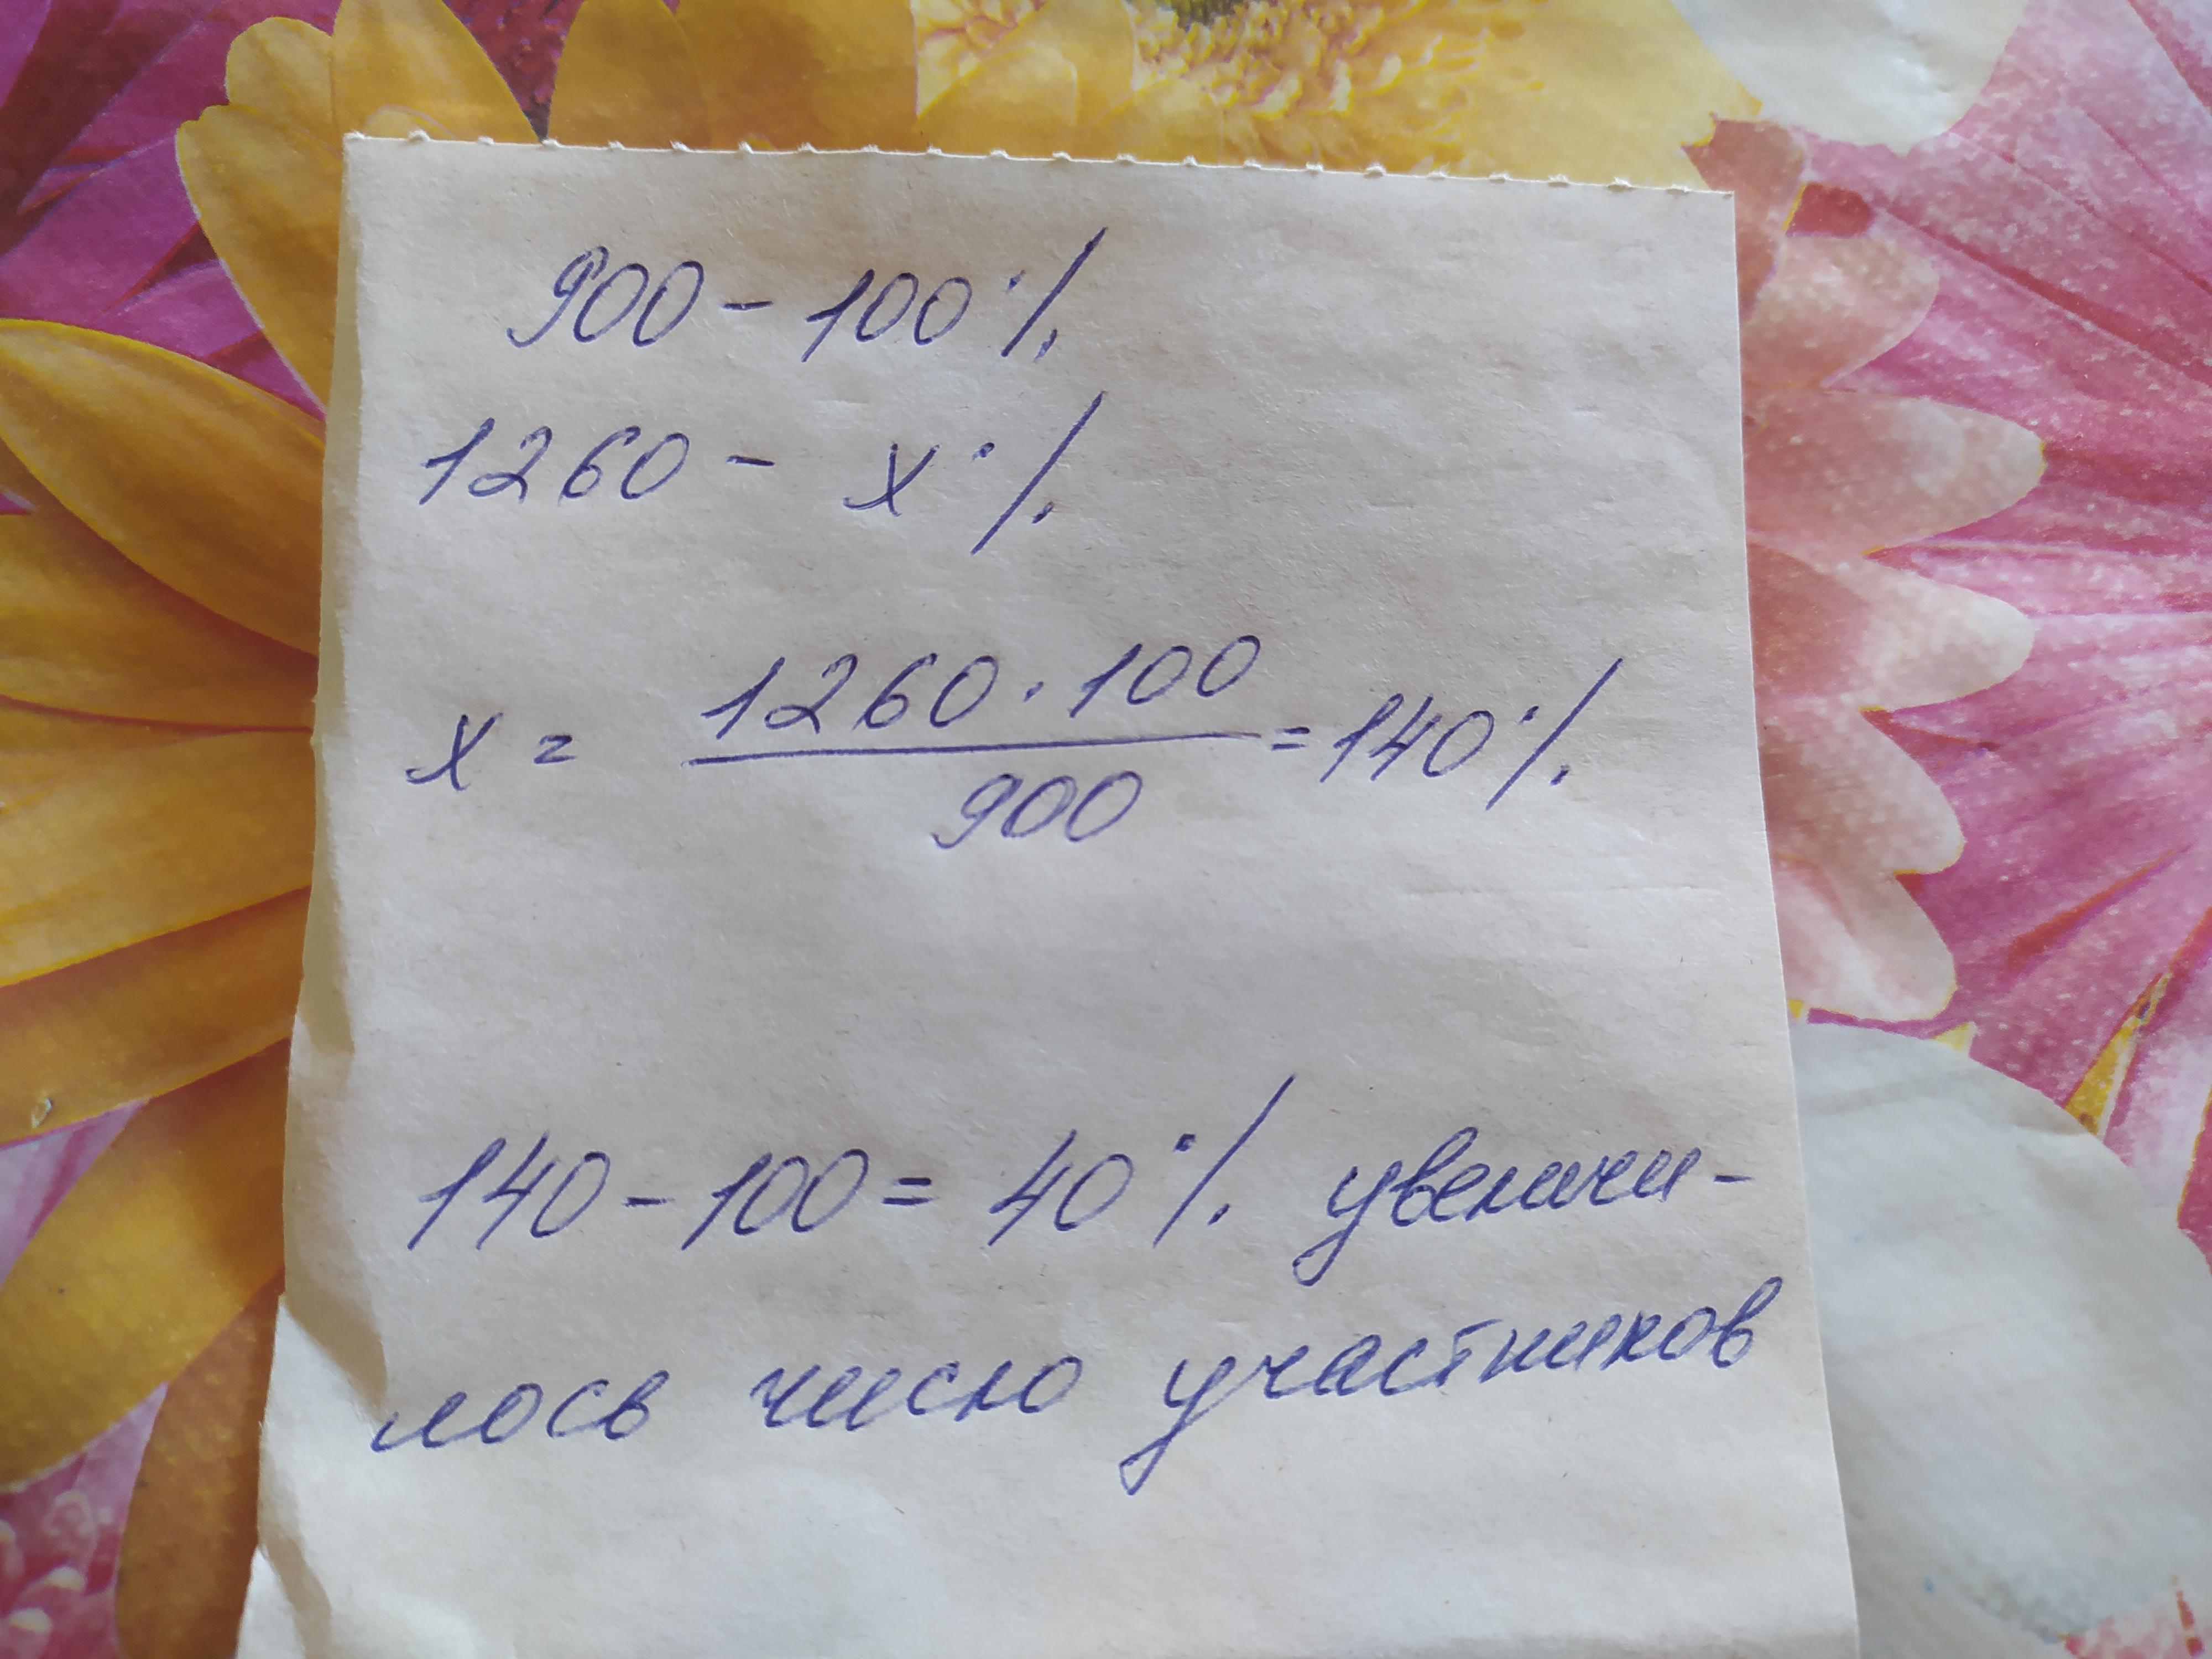 900 - 100 %
1260 - x %
x = 1260 · 100 / 900 = 140 %
140 - 100 = 40 % увеличи-
лось число участников